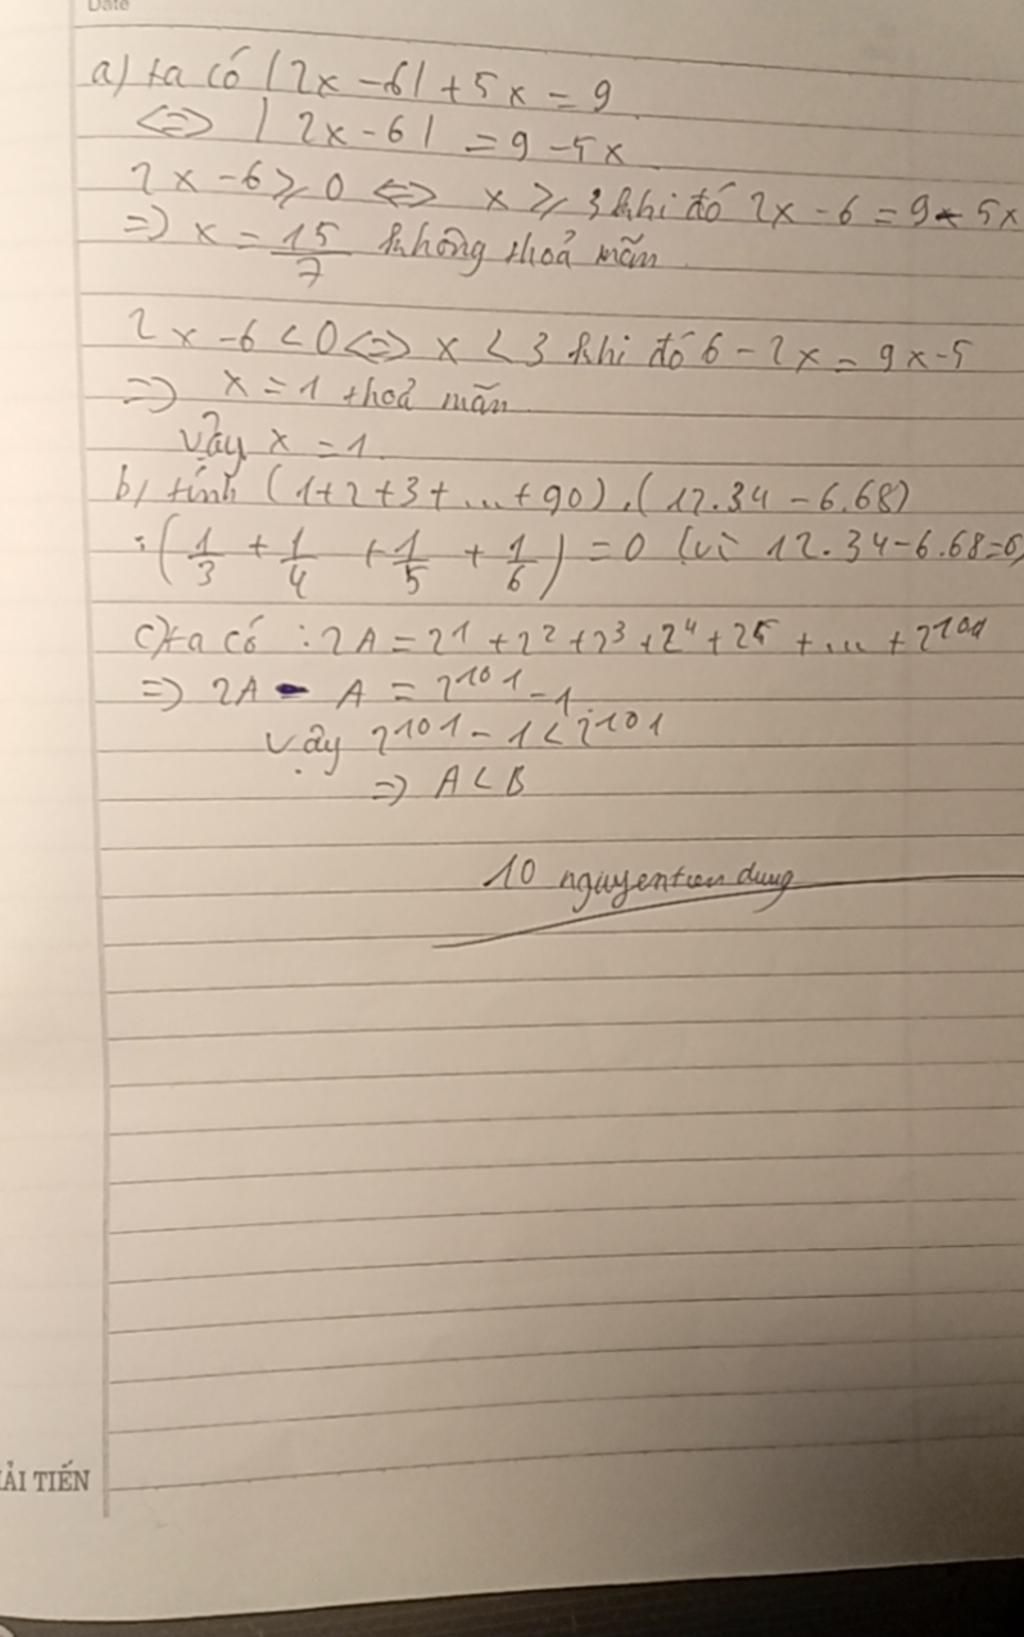 Date
a) ta có |2x - 6| + 5x = 9
<=> |2x - 6| = 9 - 5x
2x - 6 ⩾ 0 <=> x ⩾ 3 khi đó 2x - 6 = 9 - 5x
=> x = 15/7 không thoả mãn
2x - 6 < 0 <=> x < 3 khi đó 6 - 2x = 9x - 5
=> x = 1 thoả mãn
vậy x = 1.
b, tính (1+2+3+...+90).(12.34 - 6.68)
: (1/3 + 1/4 + 1/5 + 1/6) = 0 (vì 12.34 - 6.68 = 0)
c) ta có : 2A = 2^1 + 2^2 + 2^3 + 2^4 + 2^5 + ... + 2^101
=> 2A - A = 2^101 - 1.
vậy 2^101 - 1 < 2^101
=> A < B
10 nguyentien dung
ẢI TIẾN